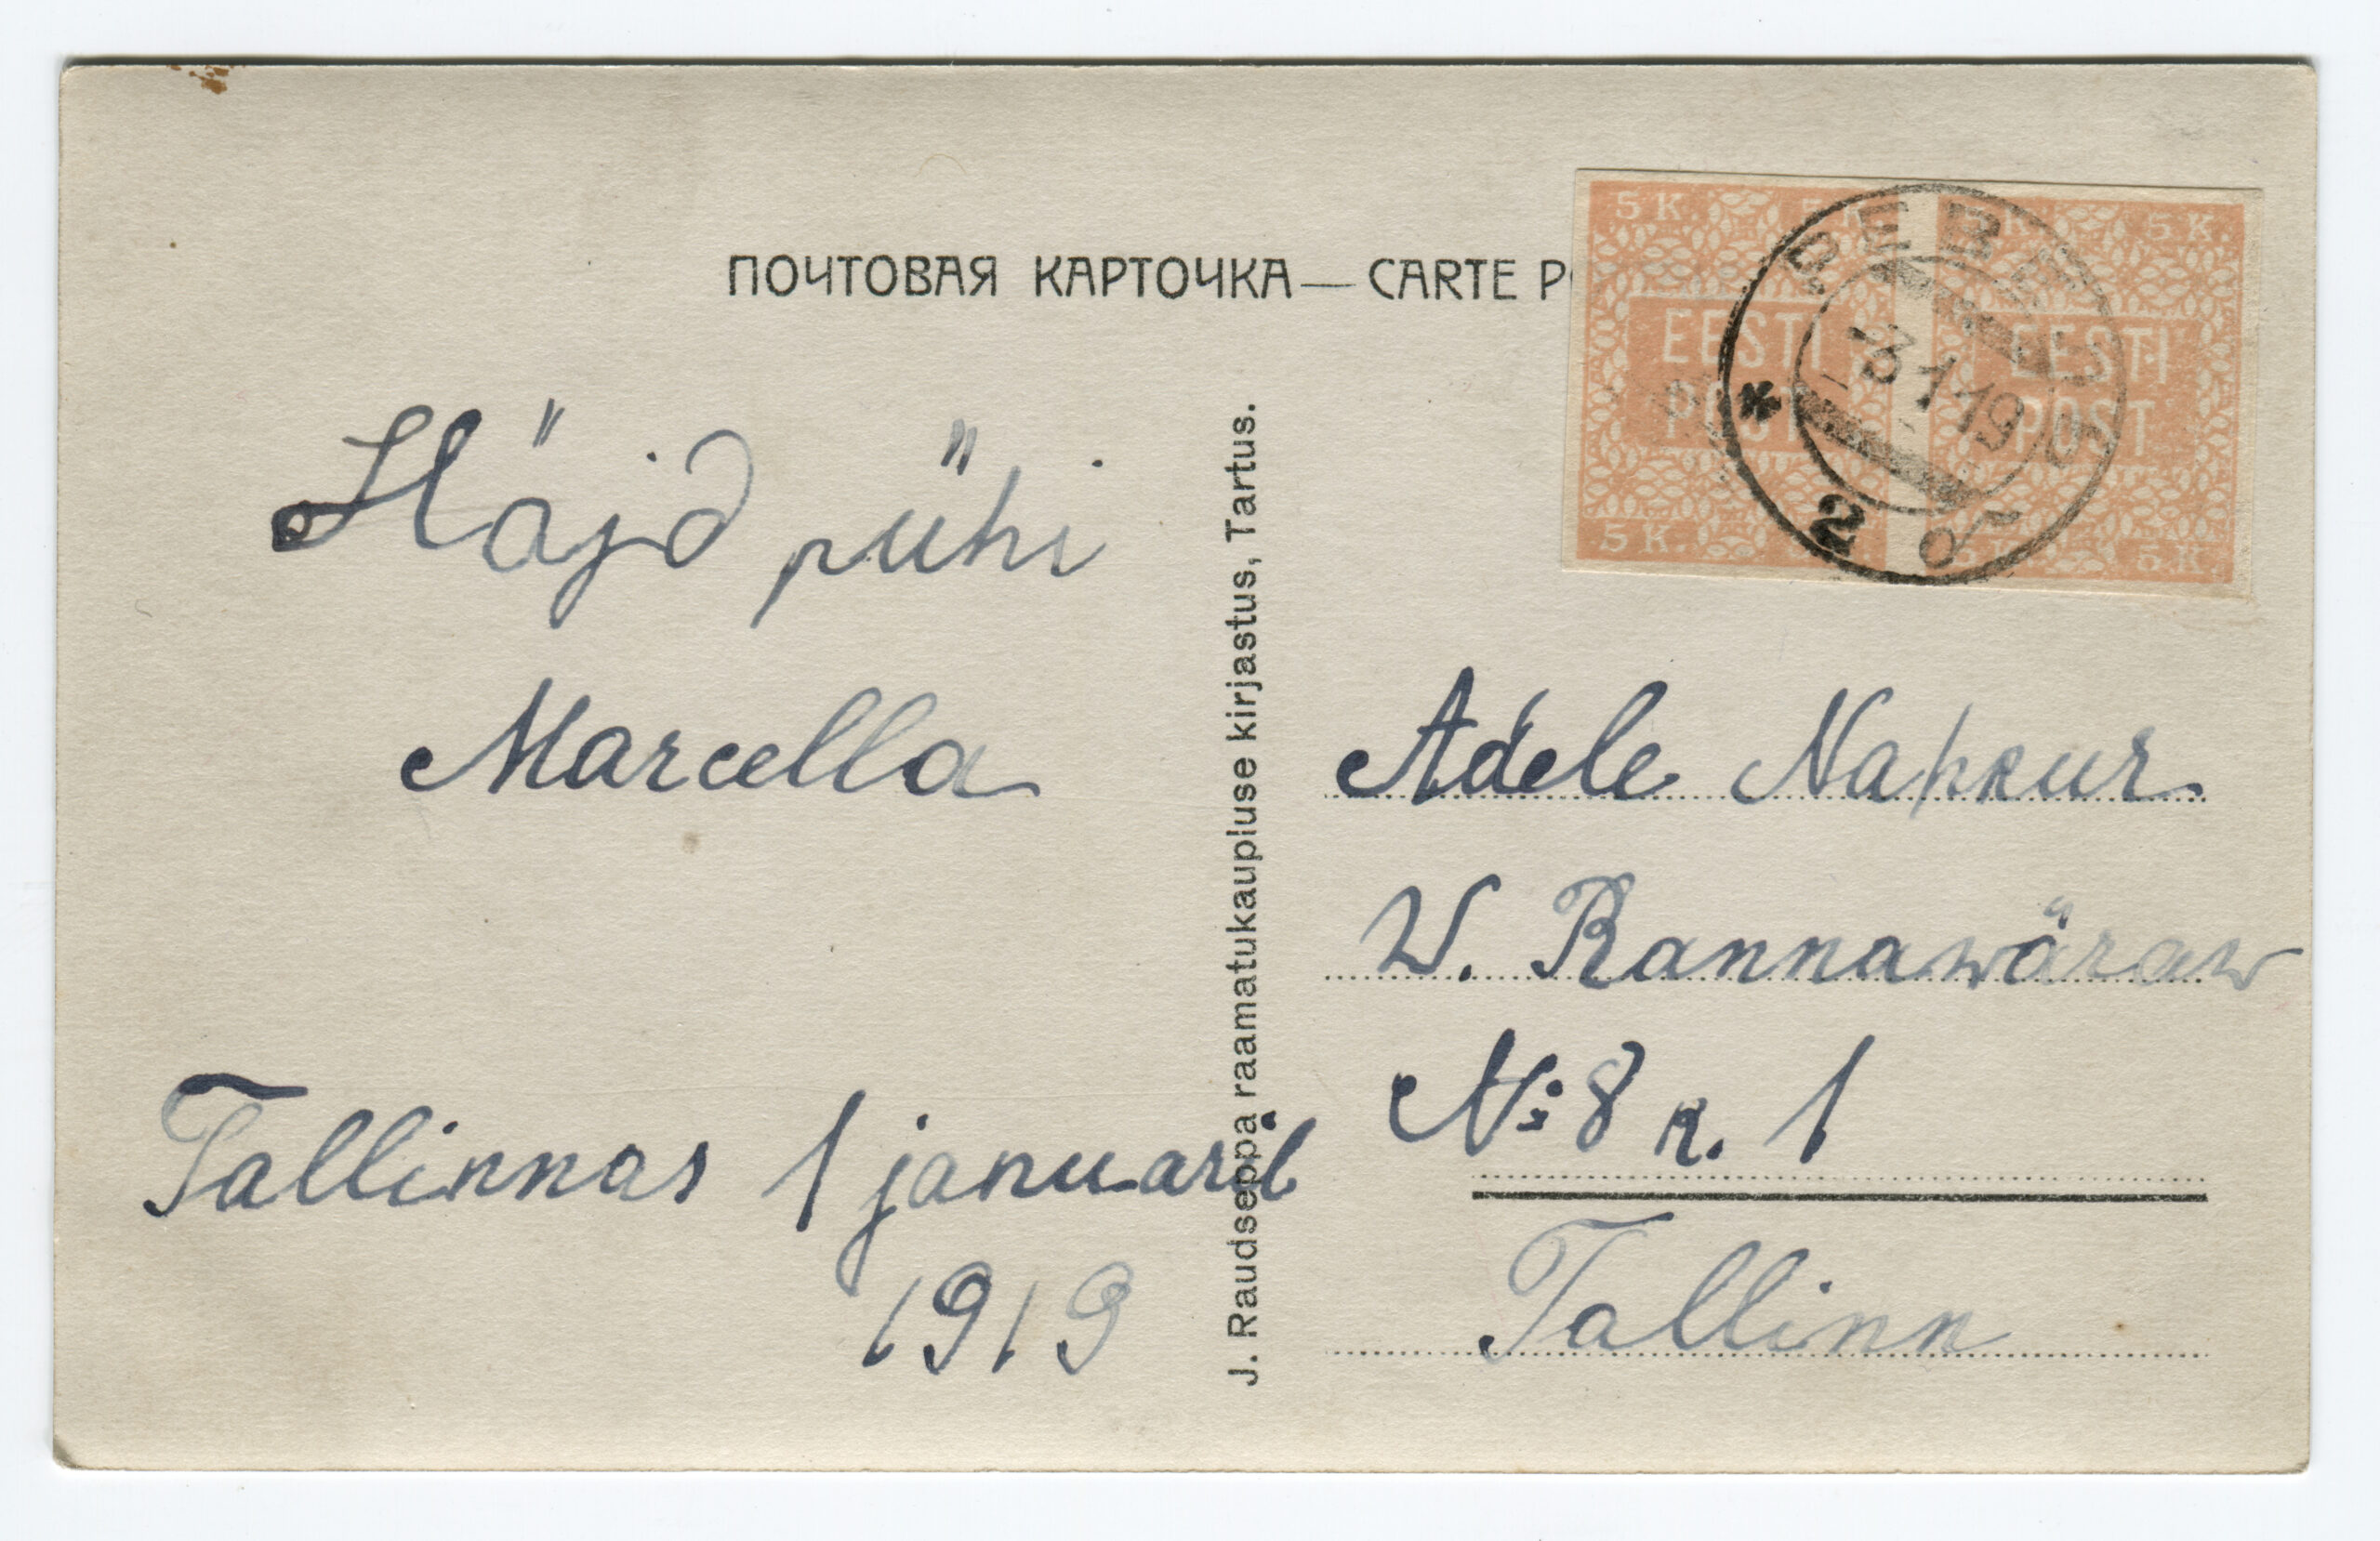 ПОЧТОВАЯ КАРТОЧКА — CARTE PO
5 K. 5 K. 5 K. 5 K.
EESTI POST
EESTI POST
5 K. 5 K. 5 K.
РЕВЕЛЬ
-3 1 19
2
Häjd pühi
Marcella
Tallinnas 1 januaril
1919
J. Raudseppa raamatukaupluse kirjastus, Tartus.
Adele Nahkur
W. Rannawäraw
№ 8 k. 1
Tallinn